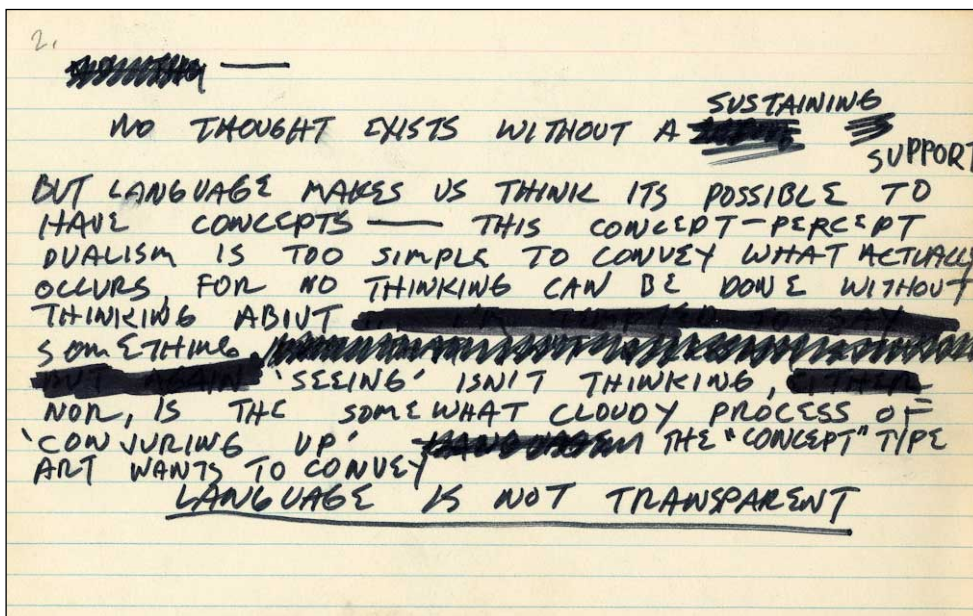 2.
—
SUSTAINING
NO THOUGHT EXISTS WITHOUT A
SUPPORT
BUT LANGUAGE MAKES US THINK ITS POSSIBLE TO
HAVE CONCEPTS — THIS CONCEPT-PERCEPT
DUALISM IS TOO SIMPLE TO CONVEY WHAT ACTUALLY
OCCURS, FOR NO THINKING CAN BE DONE WITHOUT
THINKING ABIUT I'M TEMPTED TO SAY
SOMETHING
BUT AGAIN 'SEEING' ISN'T THINKING, EITHER
NOR, IS THE SOMEWHAT CLOUDY PROCESS OF
'CONJURING UP' THE "CONCEPT" TYPE
ART WANTS TO CONVEY
LANGUAGE IS NOT TRANSPARENT